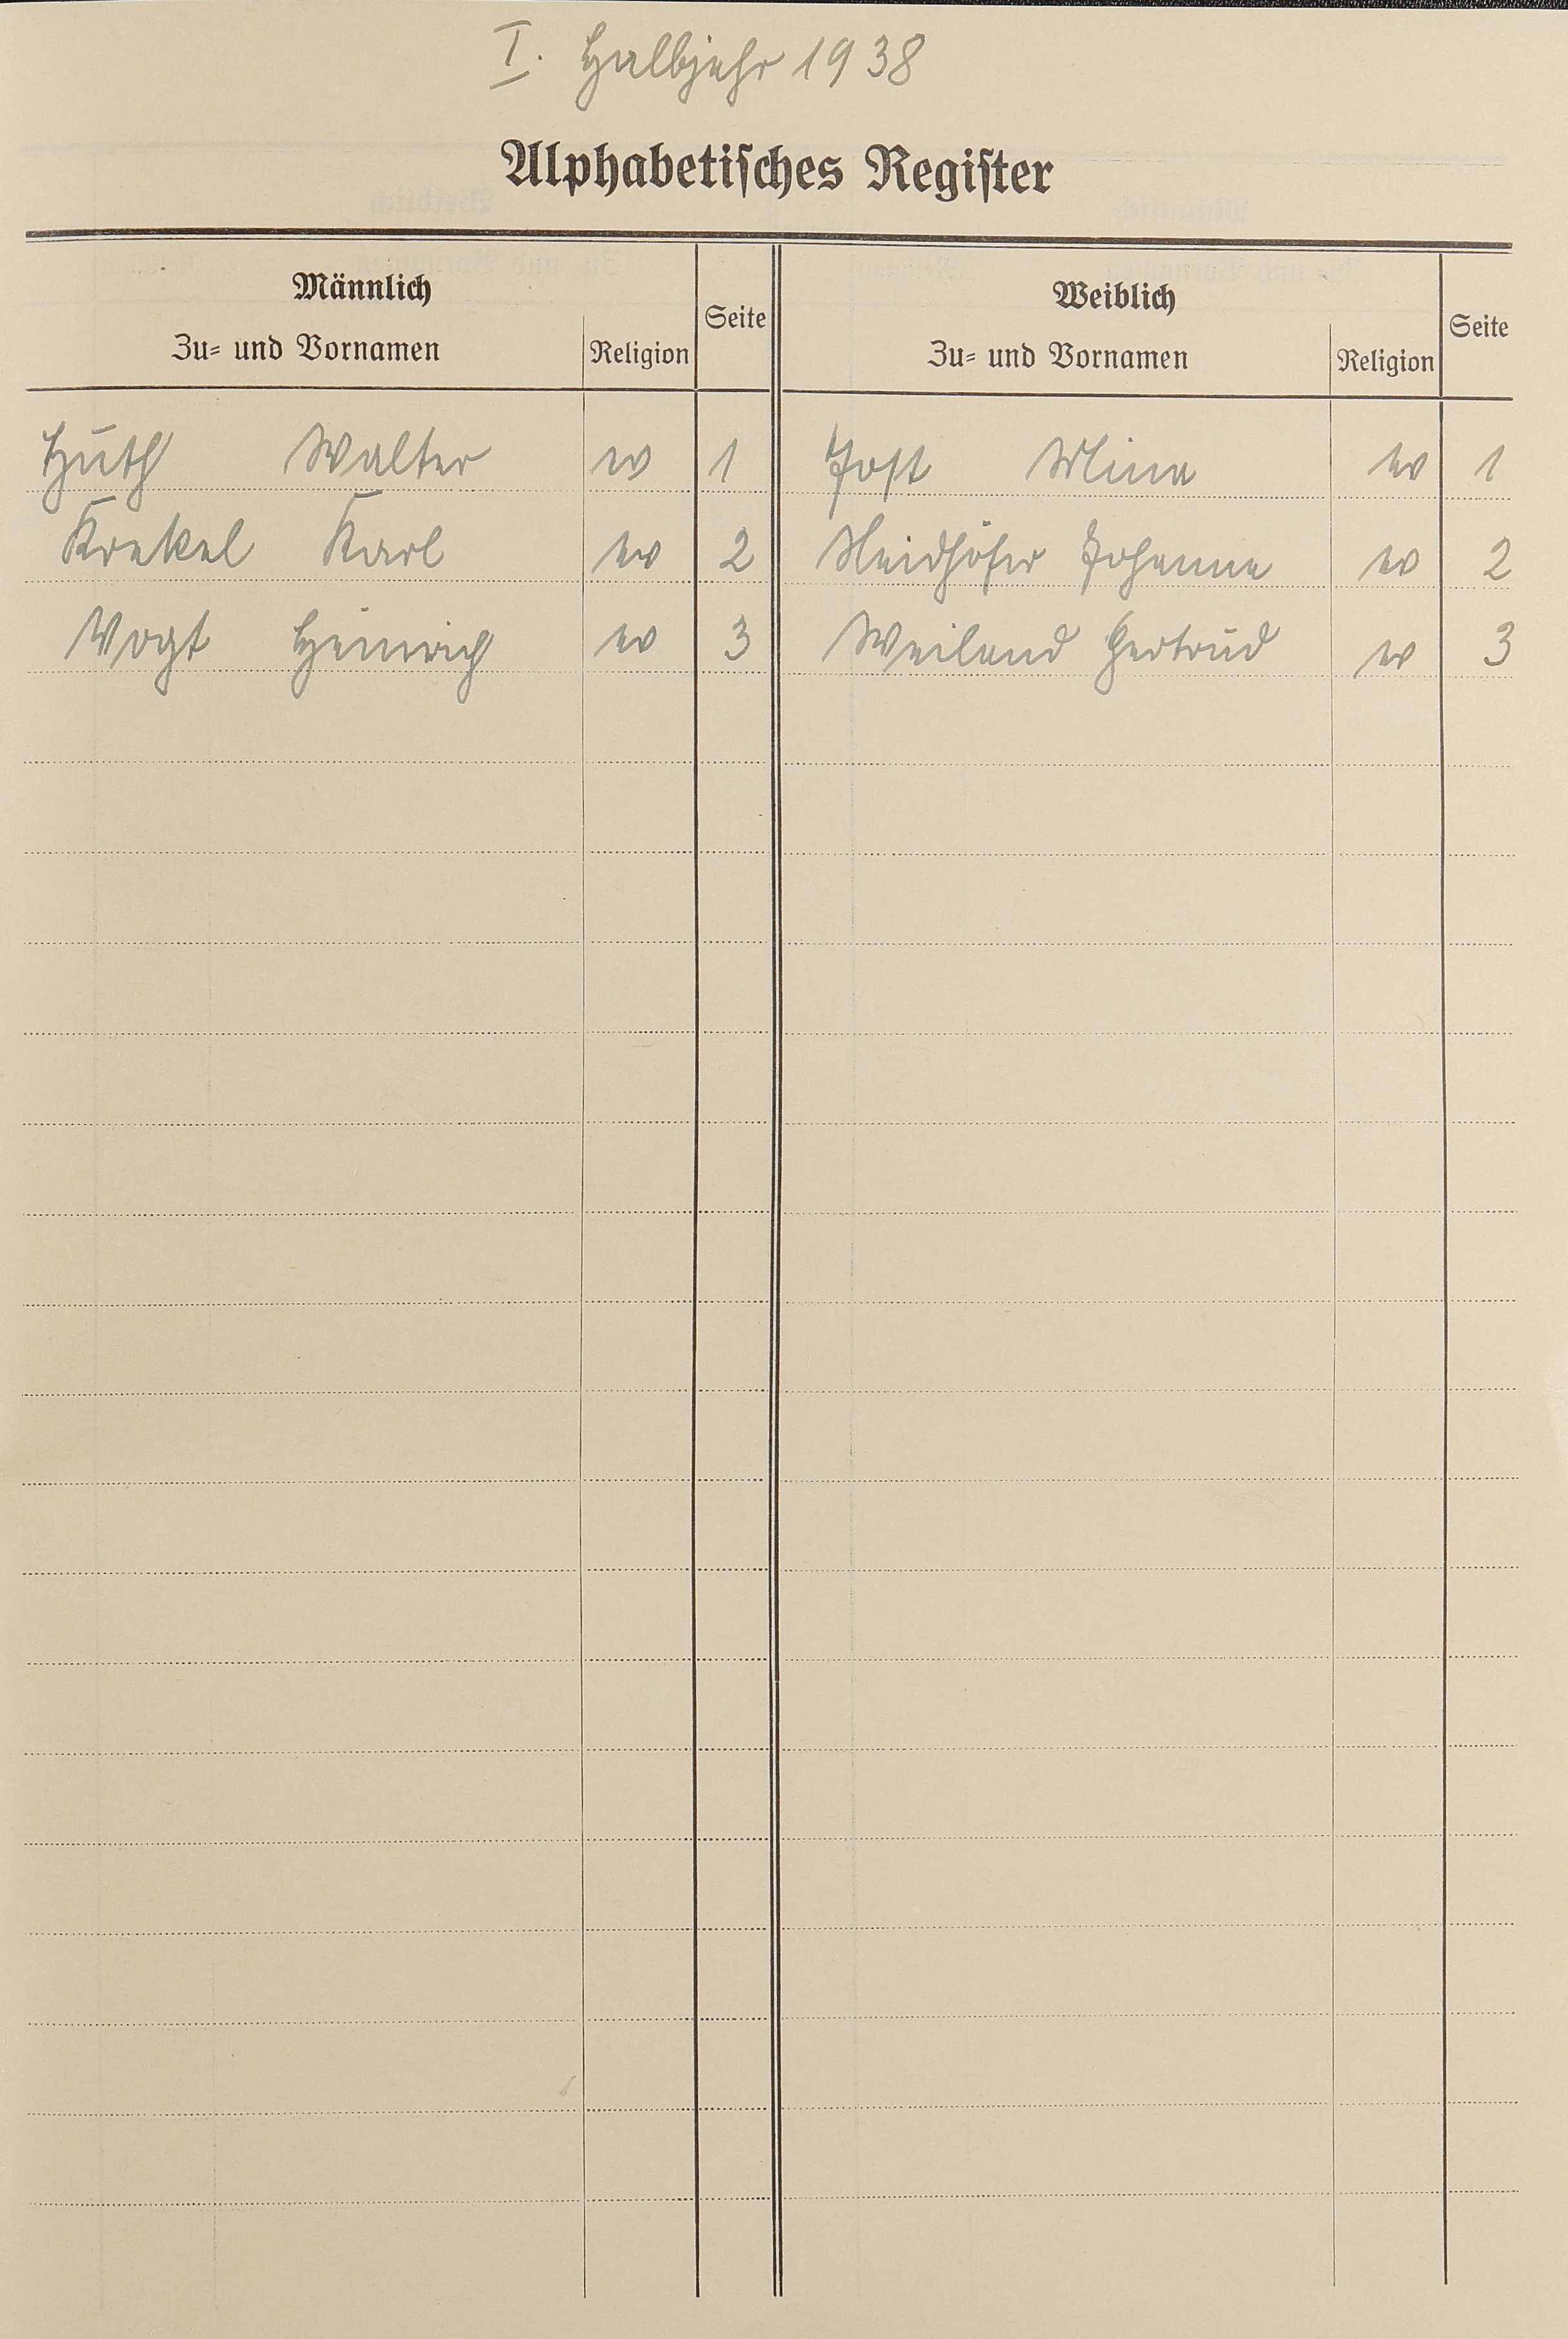 I. Halbjahr 1938
Alphabetisches Register
Männlich
Zu- und Vornamen Religion Seite
Weiblich
Zu- und Vornamen Religion Seite
Huth Walter ev 1 Jost Mina ev 1
Krekel Karl ev 2 Neidhöfer Johanna ev 2
Vogt Heinrich ev 3 Weiland Gertrud ev 3